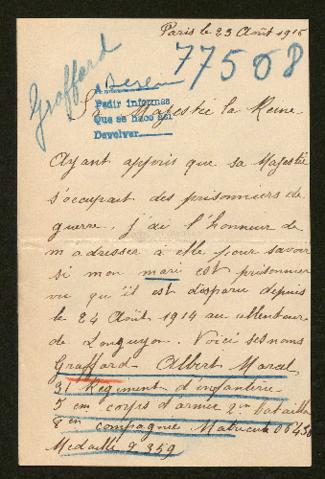 Paris le 23 Août 1916
Graffard
77508
A
Pedir informes
Que se hace así
Devolver
Sa Majestie la Reine
Ayant appris que sa Majestie
s'occupait des prisonniers de
guerre, j'ai l'honneur de
m adresser à elle pour savoir
si mon mari est prisonnier
vu qu'il est disparu depuis
le 24 Août 1914 au
de Longuyon. Voici ses noms
Graffard Albert Marcel
31 Régiment d'infanterie
5 em corps d'armée 2me bataillon
8 em compagnie Matricule 06456
Medaille 2359